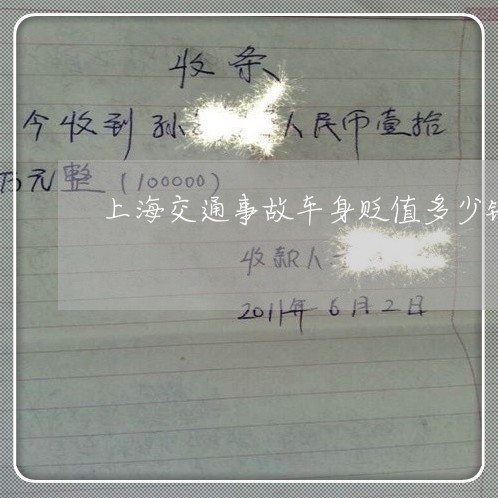 收条
今收到孙 人民币壹拾
万元整（100000）
上海交通事故车身贬值多少钱
收款人
2011年6月2日